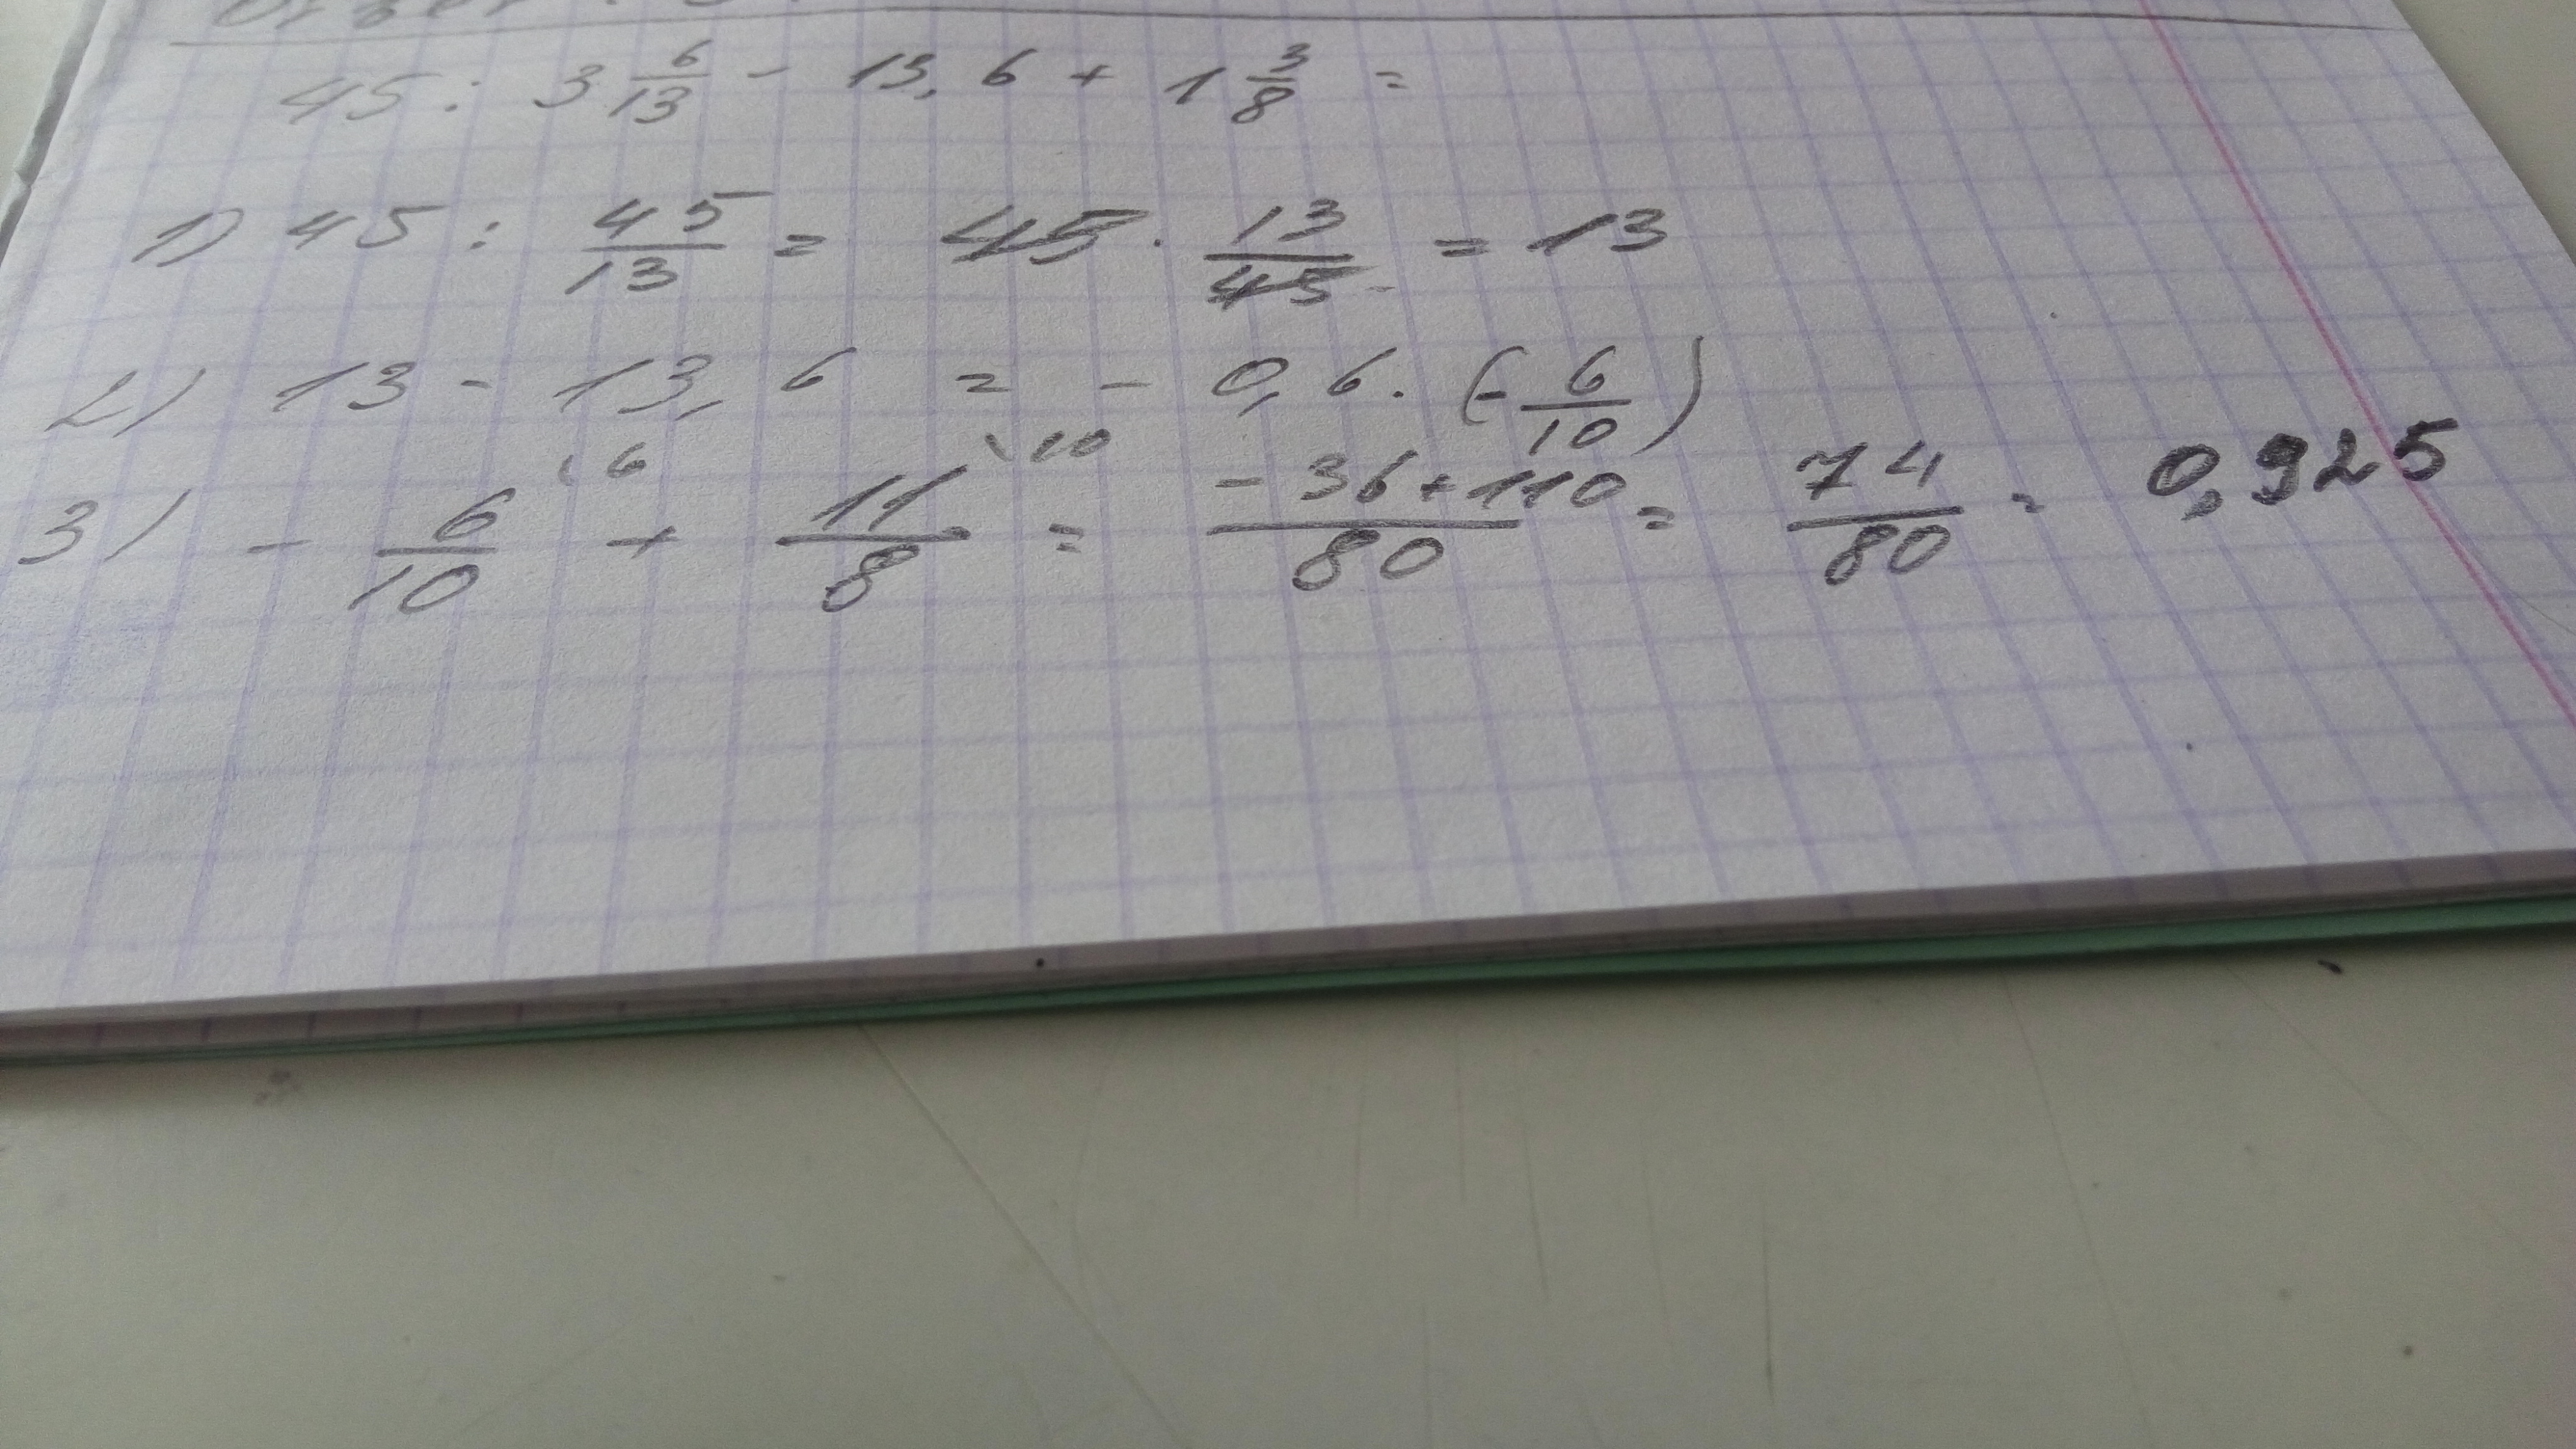 45 : 3 6/13 - 13,6 + 1 3/8 =
1) 45 : 45/13 = 45 · 13/45 = 13
2) 13 - 13,6 = - 0,6. (- 6/10)
3) - 6/10 \6 + 11/8 \10 = (-36+110)/80 = 74/80 = 0,925